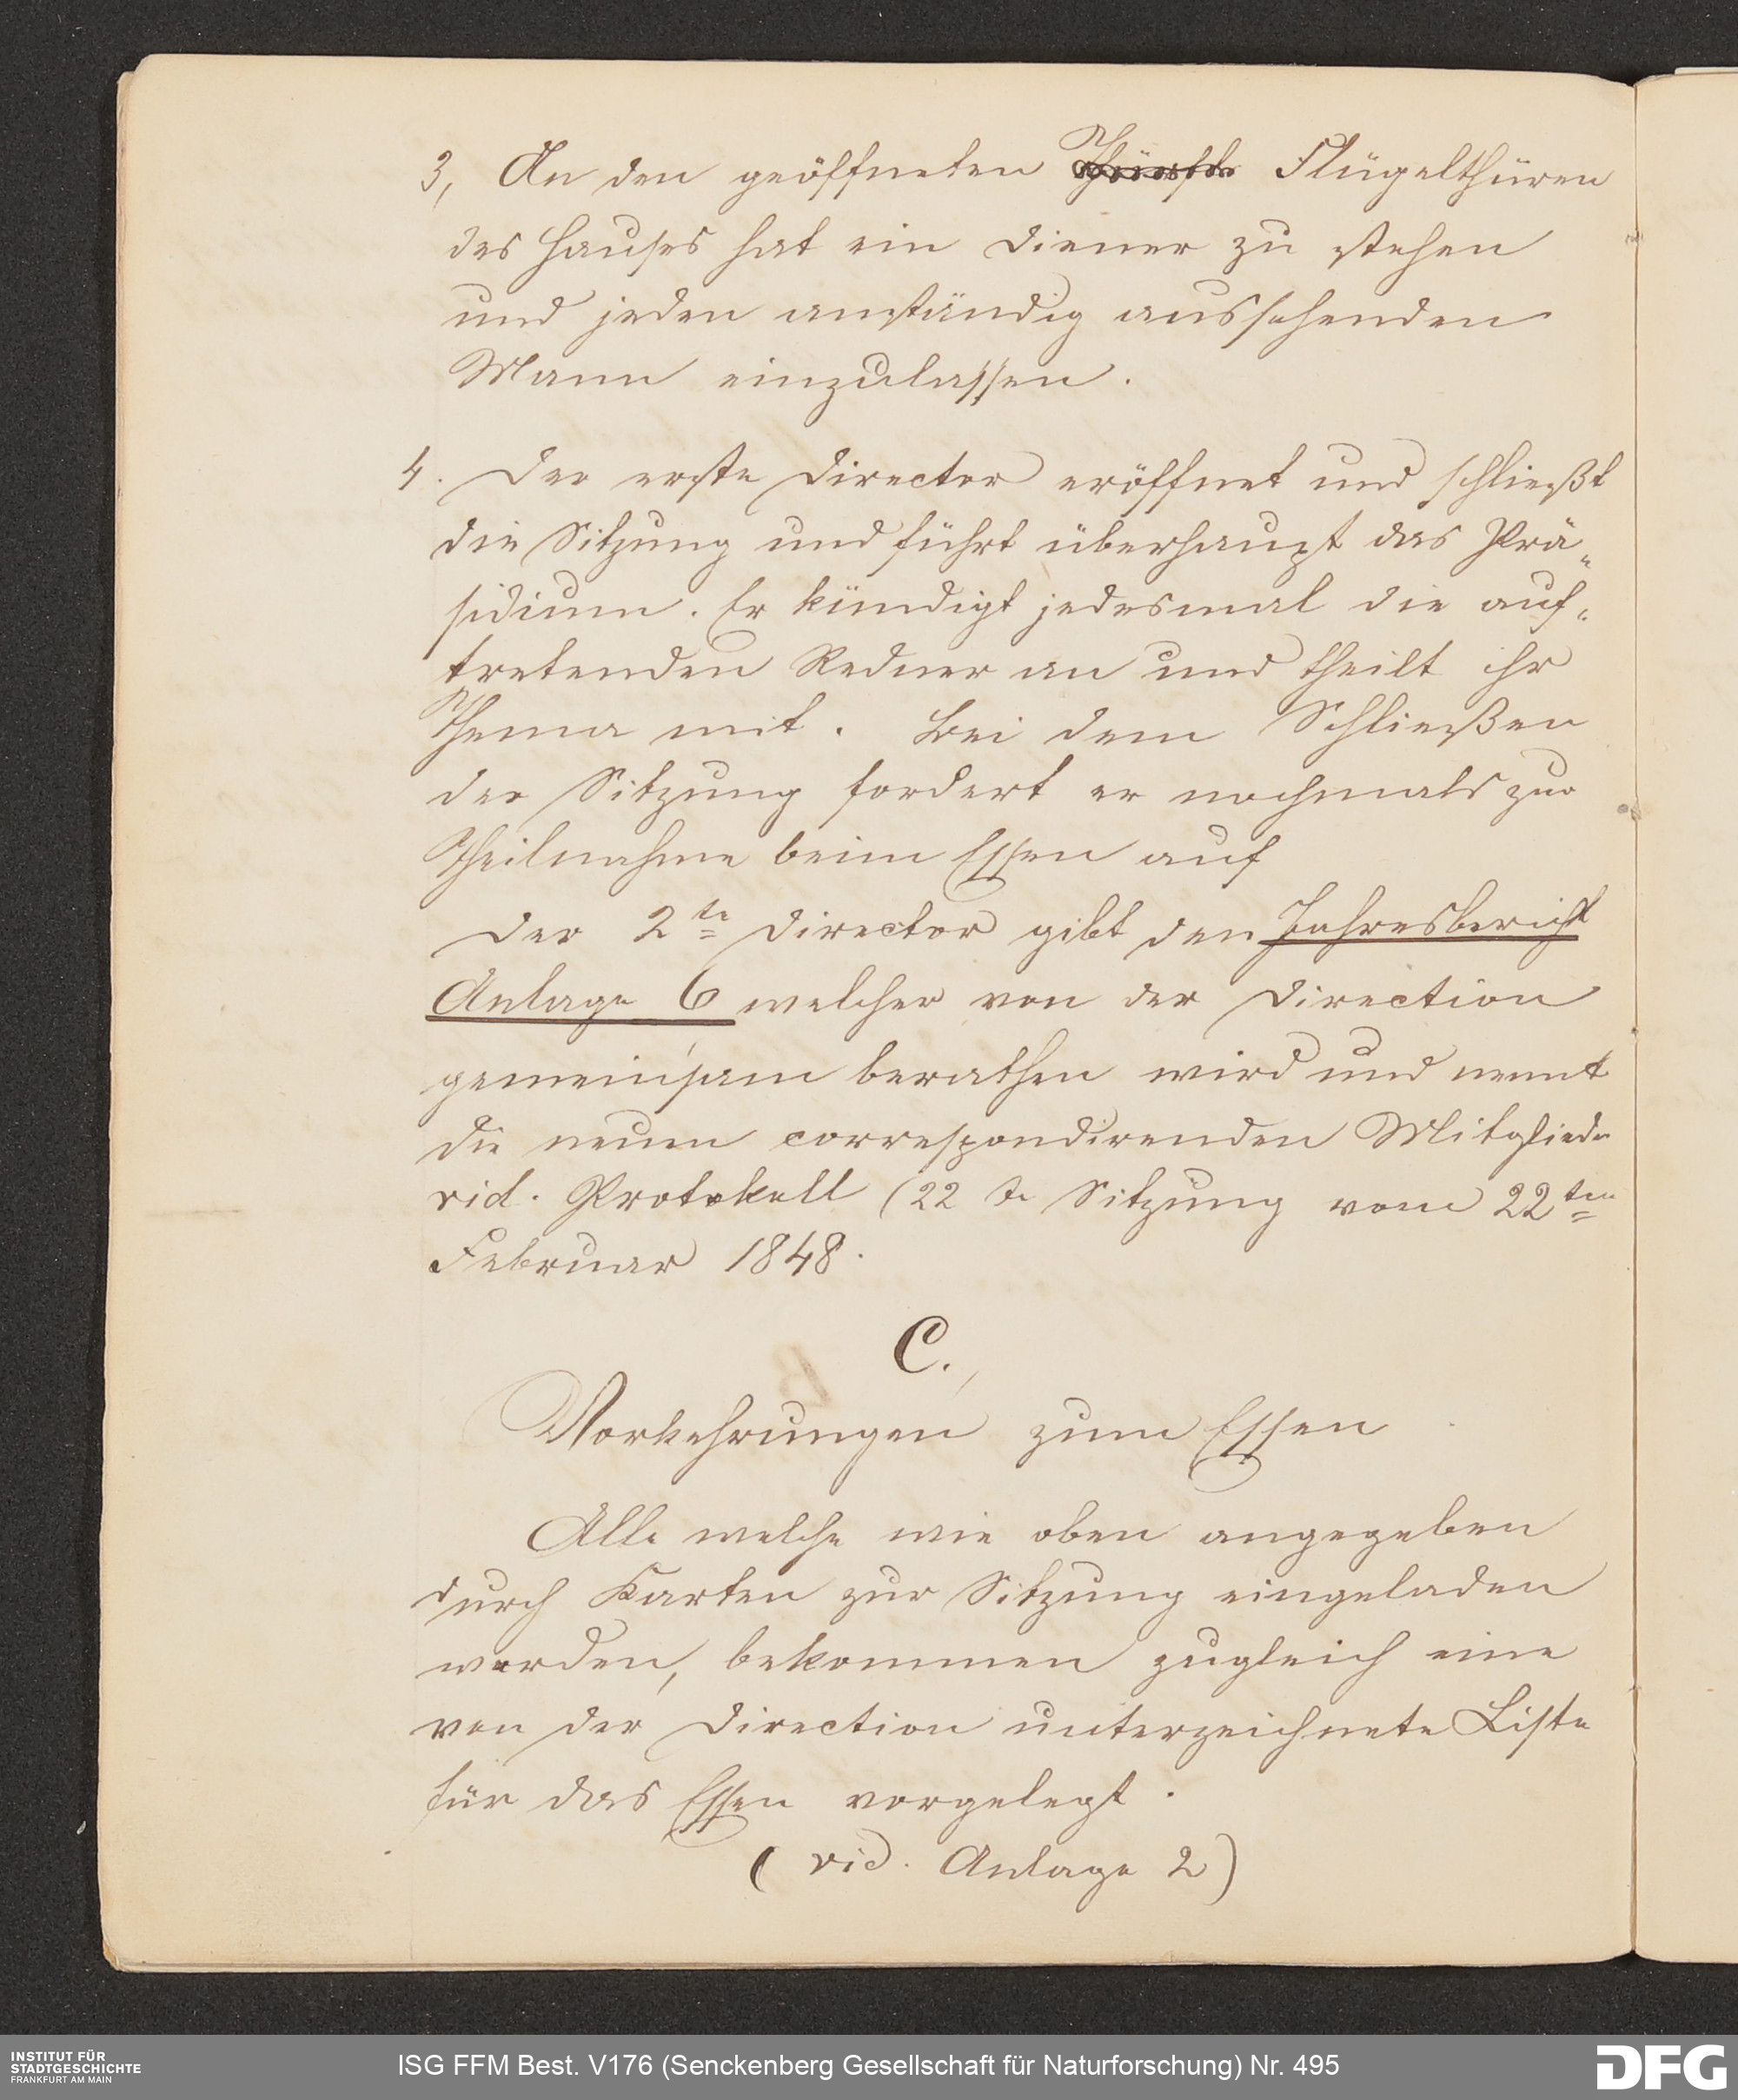 3, An den geöffneten Flügelthüren
des Hauses hat ein Diener zu stehen
und jeden anständig aussehenden
Mann einzulassen.
4. Der erste Director eröffnet und schließt
die Sitzung und führt überhaupt das Prä„
sidium. Er kündigt jedesmal die auf„
tretenden Redner an und theilt ihr
Thema mit. Bei dem Schließen
der Sitzung fordert er nochmals zur
Theilnahme beim Essen auf
Der 2te Director gibt den Jahresbericht
Anlage 6 welcher von der Direction
gemeinsam berathen wird und nennt
die neuen correspondirenden Mitglieder
vid. Protokoll (22 te Sitzung vom 22ten
Februar 1848.
C.
Vorkehrungen zum Essen
Alle welche wie oben angegeben
durch Karten zur Sitzung eingeladen
werden, bekommen zugleich eine
von der Direction unterzeichnete Liste
für das Essen vorgelegt.
(vid. Anlage 2)
INSTITUT FÜR
STADTGESCHICHTE
FRANKFURT AM MAIN
ISG FFM Best. V176 (Senckenberg Gesellschaft für Naturforschung) Nr. 495
DFG